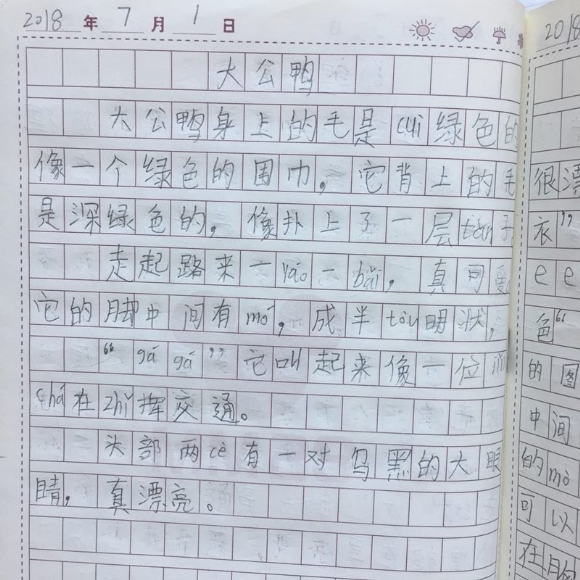 2018年7月1日
大公鸭
大公鸭身上的毛是cuì绿色的
像一个绿色的围巾，它背上的毛
是深绿色的，像扑上了一层tǎn子
走起路来一yáo一bǎi，真可爱
它的脚中间有mó，成半tòu明状，
“gá gá”它叫起来像一位
chá在zhǐ挥交通。
头部两cè有一对乌黑的大眼
睛，真漂亮。
2018
很漂
衣”
e e
色“
的图
中间
的mó
可以